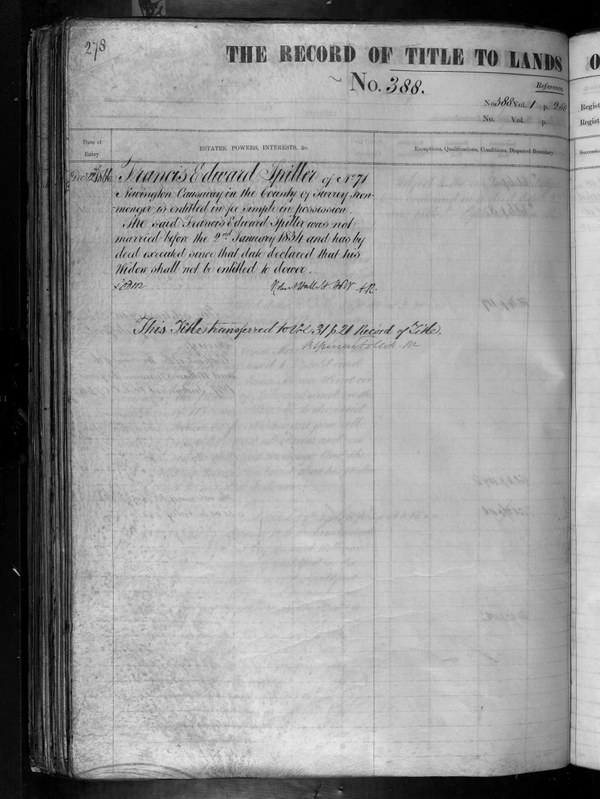 278
THE RECORD OF TITLE TO LANDS
No. 388.
Reference.
No. 388 Vol. 1 p.
No. Vol. p.
Date of Entry
ESTATES, POWERS, INTERESTS, &c.
Exceptions, Qualifications, Conditions, Disputed Boundary
Francis Edward Spiller of No. 71
Newington Causeway in the County of Surrey Iron-
monger is entitled in fee simple in possession.
The said Francis Edward Spiller was not
married before the 2nd January 1834 and has by
deed executed since that date declared that his
Widow shall not be entitled to dower.
This Title transferred to Vol. 31 p. 21 Record of Title.
O
Regist
Regist
Succession